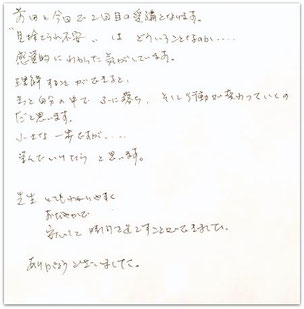 前回と今回で2回目の受講となります。
"見捨てられ不安"は どういうことなのか....
感覚的にわかった気がしています。
理解することができると、
もっと自分の中で ふに落ち、そして行動が変わっていくの
だと思います。
小さな一歩ですが、....
進んでいけたらと思います。
先生 とてもわかりやすく
おだやかで
安心して 時間を過ごすことができました。
ありがとうございました。